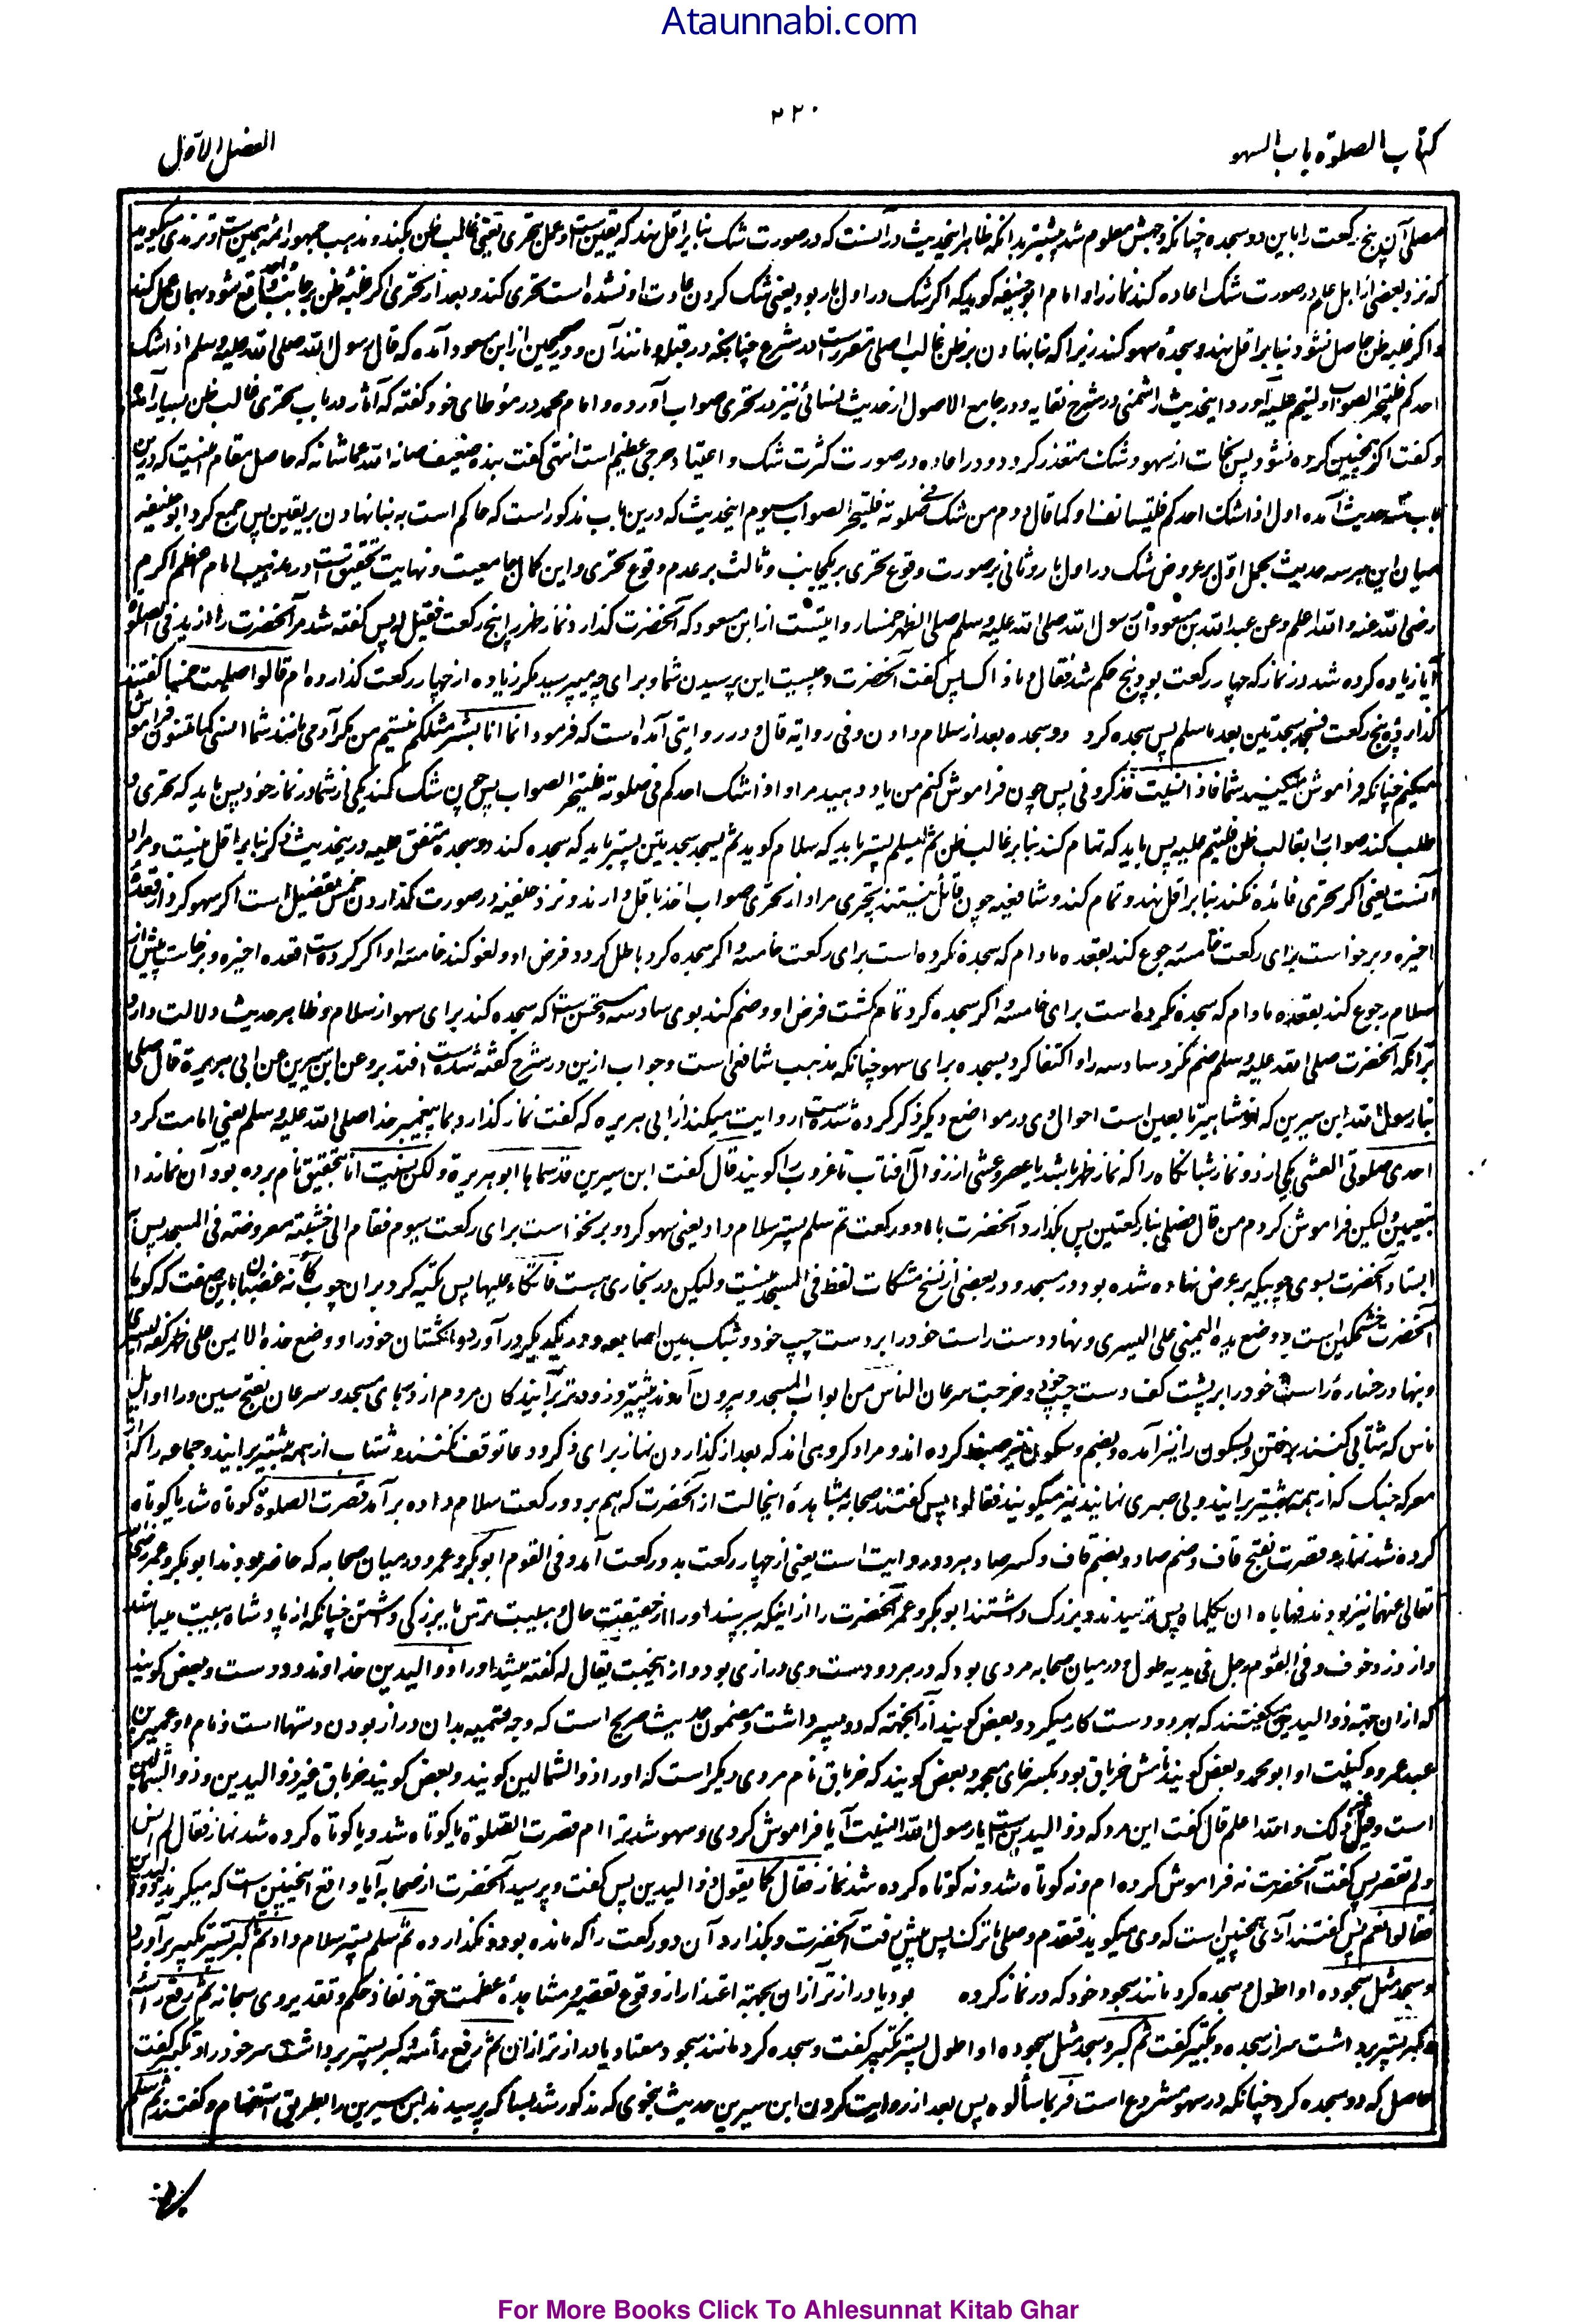 Ataunnabi.com
۳۲۰
کتاب الصلوة باب السهو
الفصل الاول
مصلی آن پنج رکعت را باین دو سجده چنانکه وجهش معلوم شد پیشتر بدانکه ظاهر اینحدیث در آنست که در صورت شک بنا بر اقل نهند که یقین ست و عمل بتحری یعنی غالب ظن نکنند و مذهب جمهور ائمه همین ست و ترمذی میگوید
که نزد بعضی از اهل علم در صورت شک اعاده کند نماز را و امام ابو حنیفه گوید که اگر شک در اول بار بود یعنی شک کردن عادت او نشده است تحری کند و بعد از تحری اگر غلبه ظن بر جانب واحد واقع شود بهمان عمل کند
و اگر غلبه ظن حاصل نشود بنا بر اقل نهد و سجده سهو کند زیرا که بنا نهادن بر ظن غالب اصلی مقررست در شرع چنانکه در قبله و مانند آن و در صحیحین از ابن مسعود آمده که قال رسول الله صلی الله علیه وسلم اذا شک
احدکم فلیتحر الصواب و لیتم علیه آورد اینحدیث را شمنی در شرح نقایه و در جامع الاصول از حدیث نسائی نیز در تحری صواب آورده و امام محمد در مؤطای خود گفته که آثار در باب تحری غالب ظن بسیار آمده
و گفت اگر همچنین کرده نشود پس نجات از سهو و شک متعذر گردد و در اعاده در صورت کثرت شک و اعتیاد حرجی عظیم است انتهی گفت بنده ضعیف صانه الله عما شانه که حاصل مقام اینست که درین
باب سه حدیث آمده اول اذا شک احدکم فلیستانف او کما قال دوم من شک فی صلوته فلیتحر الصواب سیوم اینحدیث که درین باب مذکور است که حاکم است به بنا نهادن بر یقین پس جمع کرد ابو حنیفه
میان این هر سه حدیث بحمل اول بر عروض شک در اول بار و ثانی بر صورت وقوع تحری بر یکجانب و ثالث بر عدم وقوع تحری و این کمال جامعیت و نهایت تحقیق ست در مذهب امام اعظم اکرم
رضی الله عنه و الله اعلم وعن عبد الله بن مسعود ان رسول الله صلی الله علیه وسلم صلی الظهر خمسا روایتست از ابن مسعود که آنحضرت گذارد نماز ظهر را پنج رکعت فقیل له پس گفته شد مر آنحضرت را ازید فی الصلوة
آیا زیاده کرده شد در نماز که چهار رکعت بود پنج حکم شد فقال و ما ذاک پس گفت آنحضرت و چیست این پرسیدن شما و برای چه میپرسید مگر زیاده از چهار رکعت گذارده ام قالوا صلیت خمسا گفتند
گذاردی پنج رکعت فسجد سجدتین بعد ما سلم پس سجده کرد دو سجده بعد از سلام دادن و فی روایة قال و در روایتی آمده است که فرمود انما انا بشر مثلکم نیستم من مگر آدمی مانند شما انسی کما تنسون فراموش
میکنم چنانکه فراموش میکنید شما فاذا نسیت فذکرونی پس چون فراموش کنم من یاد دهید مرا و اذا شک احدکم فی صلوته فلیتحر الصواب پس چون شک کند یکی از شما در نماز خود پس باید که تحری و
طلب کند صواب را بغالب ظن فلیتم علیه پس باید که تمام کند بنا بر غالب ظن ثم لیسلم پستر باید که سلام گوید ثم یسجد سجدتین پستر باید که سجده کند دو سجده متفق علیه و در ینحدیث ذکر بنا بر اقل نیست و مراد
آنست یعنی اگر تحری فائده نکند بنا بر اقل نهد و تمام کند و شافعیه چون قائل نیستند بتحری مراد از تحری صواب اخذ باقل دارند و نزد حنفیه در صورت گذاردن خمس تفصیل است اگر سهو کرد از قعدهٔ
اخیره و برخواست برای رکعت خامسه رجوع کند بقعده مادام که سجده نکرده است برای رکعت خامسه و اگر سجده کرد باطل گردد فرض او و لغو کند خامسه را و اگر کرده ست قعده اخیره و برخاست پیش از
سلام رجوع کند بقعده مادام که سجده نکرده است برای خامسه و اگر سجده کرد تمام گشت فرض او و ضم کند بوی سادسه و مستحسن ست که سجده کند برای سهو از سلام و ظاهر حدیث دلالت دارد
برانکه آنحضرت صلی الله علیه وسلم ضم نکرد سادسه را و اکتفا کرد بسجده برای سهو چنانکه مذهب شافعی است و جواب ازین در شرح گفته شده ست فتدبر وعن ابن سیرین عن ابی هریرة قال صلی
بنا رسول الله ابن سیرین که از مشاهیر تابعین است احوال وی در مواضع دیگر ذکر کرده شده ست روایت میکند از ابی هریره که گفت نماز گذارد بما پیغمبر خدا صلی الله علیه وسلم یعنی امامت کرد
احدی صلوتی العشی یکی از دو نماز شبانگاه را که نماز ظهر باشد یا عصر و عشی از زوال آفتاب تا غروب را گویند قال گفت ابن سیرین قد سماها ابو هریرة ولکن نسیت انا بتحقیق نام برده بود آن نماز را
بتعیین و لیکن فراموش کردم من قال فصلی بنا رکعتین پس بگذارد آنحضرت با ما دو رکعت ثم سلم پستر سلام داد یعنی سهو کرد و برنخواست برای رکعت سیوم فقام الی خشبة معروضة فی المسجد پس
ایستاد آنحضرت بسوی چوبیکه بر عرض نهاده شده بود در مسجد و در بعضی از نسخ مشکات لفظ فی المسجد نیست و لیکن در بخاری هست فاتکاء علیها پس تکیه کرد بران چوب کانه غضبان باین صفت که گویا
آنحضرت خشمگین است و وضع یده الیمنی علی الیسری و نهاد دست راست خود را بر دست چپ خود و شبک بین اصابعه و در یکدیگر در آورد انگشتان خود را و وضع خده الایمن علی ظهر کفه الیسری
و بنهاد رخسارهٔ راست خود را بر پشت کف دست چپ خود و خرجت سرعان الناس من ابواب المسجد و بیرون آمدند پیشتر و زودتر برآیندگان مردم از درهای مسجد و سرعان بفتح سین و را اوائل
ناس که شتابی کنند در رفتن و بسکون را نیز آمده و بضم و سکون نیز ضبط کرده اند و مراد گروهی اند که بعد از گذاردن نماز برای ذکر و دعا توقف نکنند و شتاب از همه پیشتر برآیند و جماعه را که از
معرکه جنگ که از همه پیشتر برآیند و بی صبری نمایند نیز میگویند فقالوا پس گفتند صحابه بمشاهدهٔ اینحالت از آنحضرت که هم بر دو رکعت سلام داده برآمد قصرت الصلوة کوتاه شد یا کوتاه
کرده شد نماز و قصرت بفتح قاف و ضم صاد و بضم قاف و کسر صاد بهر دو روایت است یعنی از چهار رکعت بدو رکعت آمد و فی القوم ابو بکر و عمر و در میان صحابه که حاضر بودند ابو بکر و عمر رضی الله
تعالی عنهما نیز بودند فهاباه ان یکلماه پس ترسیدند و بزرگ داشتند ابو بکر و عمر آنحضرت را از اینکه بپرسند او را از حقیقت حال و هیبت ترس با بزرگی داشتن چنانکه از پادشاه هیبت میباشد
و از دزد خوف و فی القوم رجل فی یدیه طول و در میان صحابه مردی بود که در هر دو دست وی درازی بود و از اینجهت یقال له گفته میشد او را ذو الیدین خداوند دو دست و بعض گویند
که ازان جهت ذو الیدین میگفتند که بهر دو دست کار میکرد و بعض گویند آنجهته که دو سپر داشت و مضمون حدیث صریح است که وجه تسمیه بدان دراز بودن دستها است و نام او عمیر بن
عبد عمرو و کنیت او ابو محمد و بعض گویند نامش خرباق بود بکسر خای معجمه و بعض گویند که خرباق نام مردی دیگر است که او را ذو الشمالین گویند و بعض گویند خرباق غیر ذو الیدین و ذو الشمالین
است و قیل غیر ذلک و الله اعلم قال گفت این مرد که ذو الیدین ست یا رسول الله انسیت آیا فراموش کردی و سهو شد ترا ام قصرت الصلوة یا کوتاه شد و یا کوتاه کرده شد نماز فقال لم انس
و لم تقصر پس گفت آنحضرت نه فراموش کرده ام و نه کوتاه شد و نه کوتاه کرده شد نماز فقال اکما یقول ذو الیدین پس گفت و پرسید آنحضرت از صحابه آیا واقع اینچنین ست که میگوید ذو الیدین
فقالوا نعم پس گفتند آری همچنین است که وی میگوید فتقدم و صلی ما ترک پس پیش رفت آنحضرت و بگذارد آن دو رکعت را که مانده بود و نگذارده ثم سلم پستر سلام داد ثم کبر پستر تکبیر برآورد
و سجد مثل سجوده او اطول و سجده کرد مانند سجود خود که در نماز کرده بود یا دراز تر ازان بجهته اعتذار از وقوع تقصیر و مشاهدهٔ عظمت حق و نفاذ حکم و تقدیر وی سبحانه ثم رفع راسه
و کبر پستر برداشت سر از سجده و تکبیر گفت ثم کبر و سجد مثل سجوده او اطول پستر تکبیر گفت و سجده کرد مانند سجود معتاد یا دراز تر ازان ثم رفع راسه و کبر پستر برداشت سر خود را و تکبیر گفت
حاصل که دو سجده کرد چنانکه در سهو مشروع است فربما سألوه پس بعد از روایت کردن ابن سیرین حدیث بنحوی که مذکور شد بسا که پرسیدند ابن سیرین را بطریق استفهام و گفتند ثم سلم
For More Books Click To Ahlesunnat Kitab Ghar